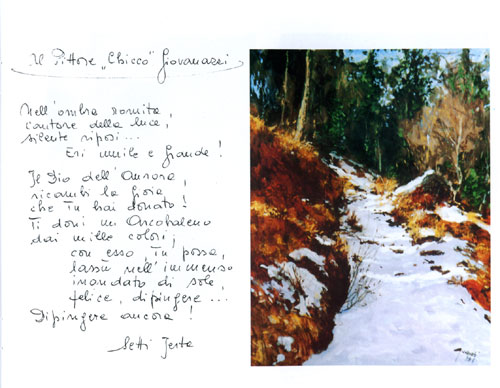 Il Pittore „Chicco” Giovanazzi
Nell'ombra romita,
cantore della luce,
silente riposi...
Eri umile e Grande!
Il Dio dell'Aurora,
ricambi la gioia
che Tu hai donato!
Ti doni un Arcobaleno
dai mille colori;
con esso, Tu possa,
lassù nell'immenso
inondato di sole,
felice, dipingere...
Dipingere ancora!
Setti